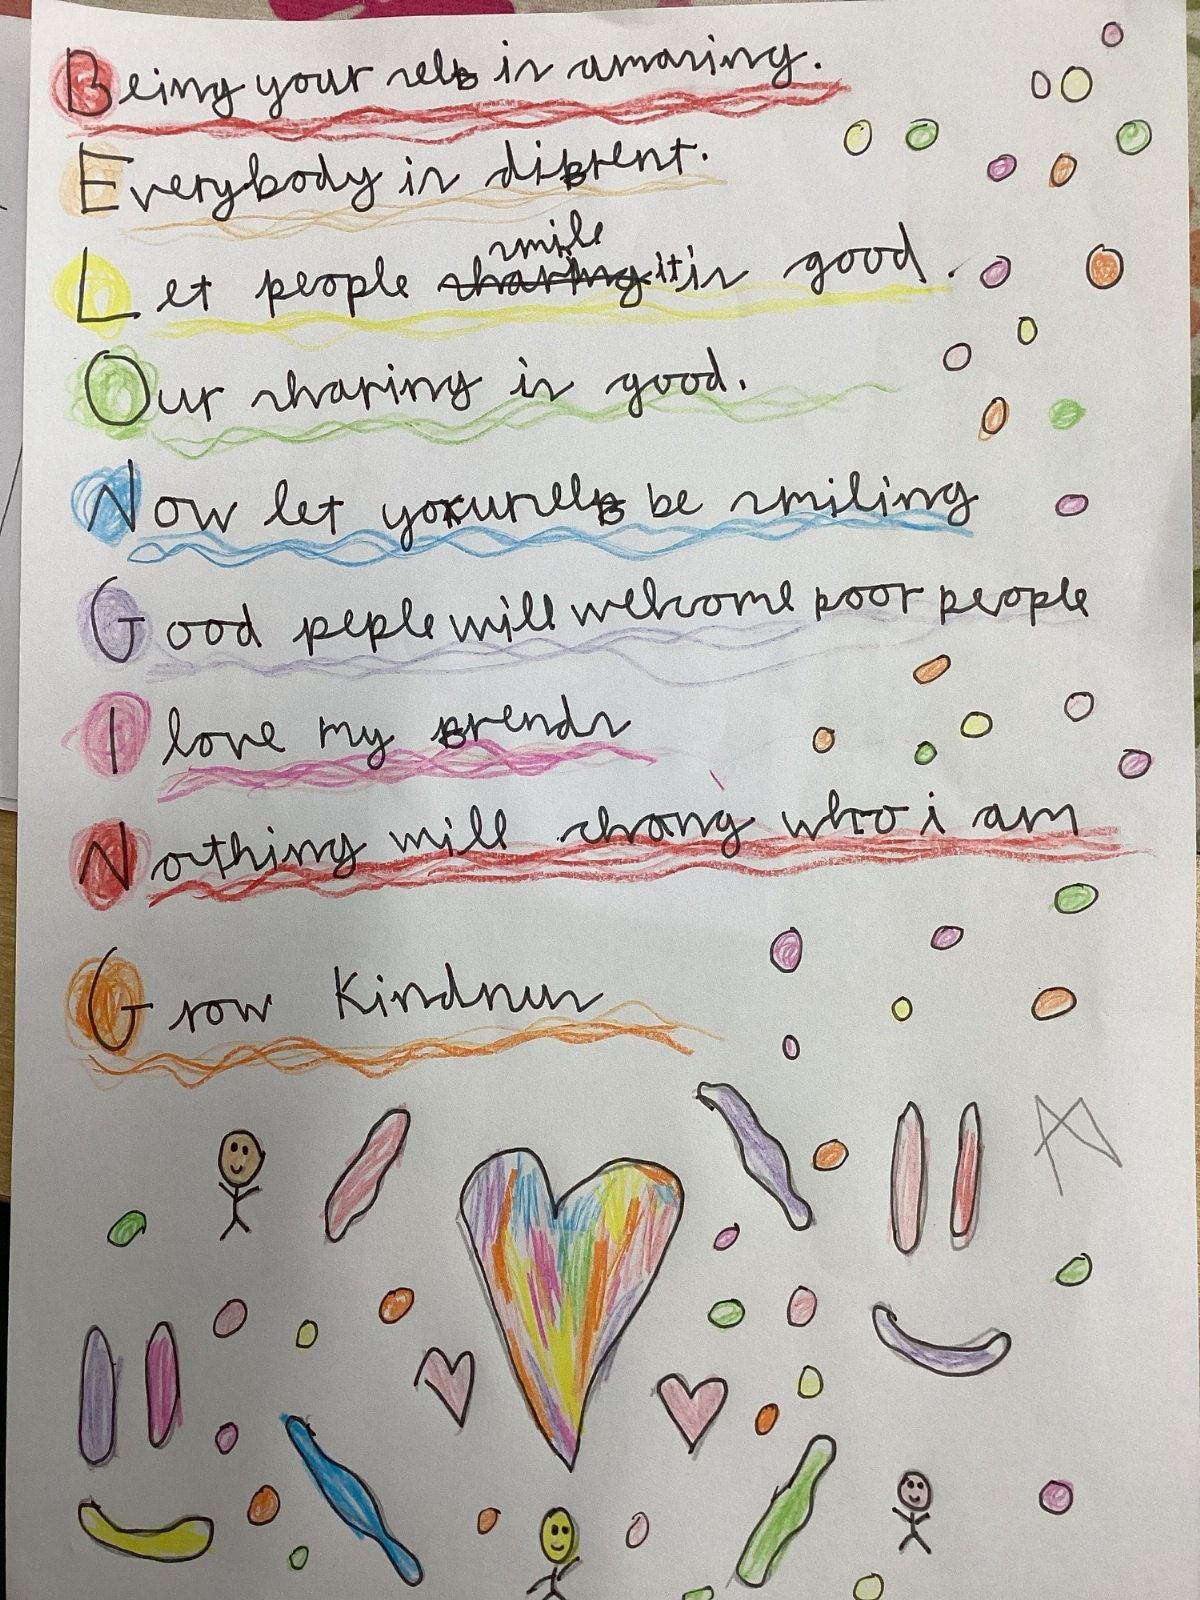 Being your self is amazing.
Everybody is difrent.
Let people sharing smile it is good.
Our sharing is good.
Now let yourself be smiling
Good peple will welcome poor people
I love my frends
Nothing will chang who i am
Grow Kindness